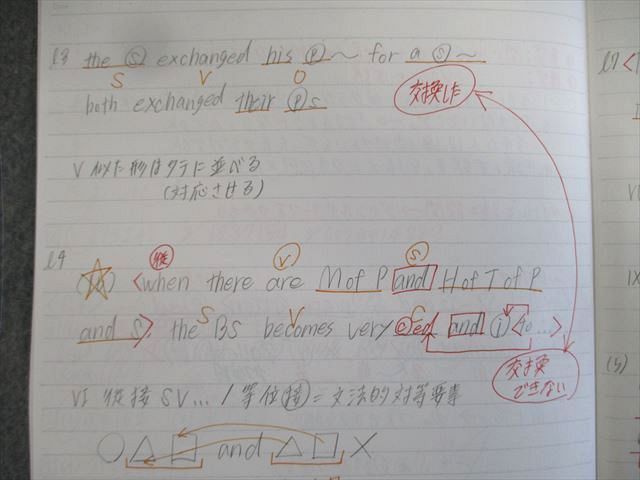 l3 the Ⓢ exchanged his Ⓟ~ for a Ⓢ~
S V O
both exchanged their Ⓟs
交換した
V 似た形はタテに並べる
(対応させる)
l7
l9
従 V S
☆ <when there are M of P and H of T of P
and S>, the BS becomes very ⓒed and ⓘ <to...>
S V C
交換できない
VI 従接 SV... / 等位接 = 文法的対等要素
IX
(5)
○△□ and △□ X